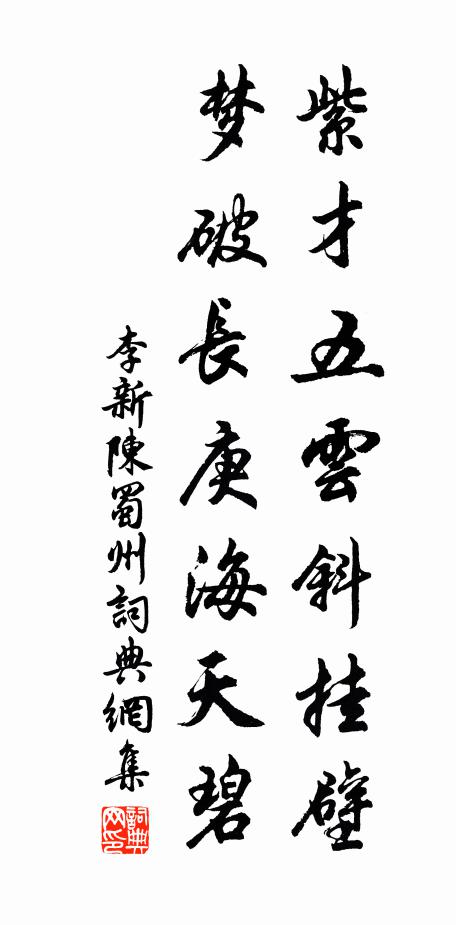 紫才五雲斜挂壁
梦破長庚海天碧
李新陳蜀州詞典網集
詞典
网印